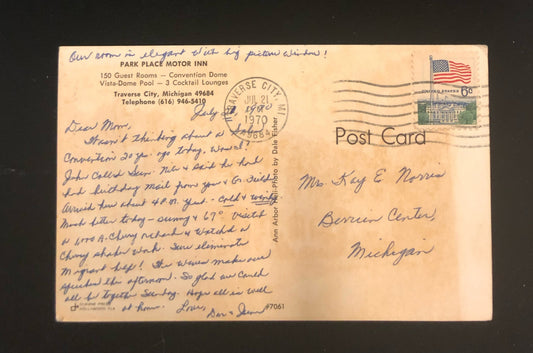 Our room is elegant with big picture window!
PARK PLACE MOTOR INN
150 Guest Rooms — Convention Dome
Vista-Dome Pool — 3 Cocktail Lounges
Traverse City, Michigan 49684
Telephone (616) 946-5410
July 21, 1970
Dear Mom,
Wasn't thinking about a
Convention 20 yrs. ago today, were I?
John Called Seen. Nite & said he had
had birthday mail from you &
Arrived here about 4 P.M. yest. - Cold & windy.
Much better today - sunny & 67°. Visited
a 600 A. Cherry orchard & watched a
Cherry shaker work. Sure eliminates
Migrant help! The wives make our
this afternoon. So glad we could
all be together Sunday. Hope all is well
at home. Love,
Don & Jean
HOLLYWOOD, FLA
#7061
Ann Arbor Mich-Photo by Dale Fisher
TRAVERSE CITY, MI
JUL 21
1970
49684
UNITED STATES
6c
Post Card
Mrs Kay E Norris
Berrien Center,
Michigan